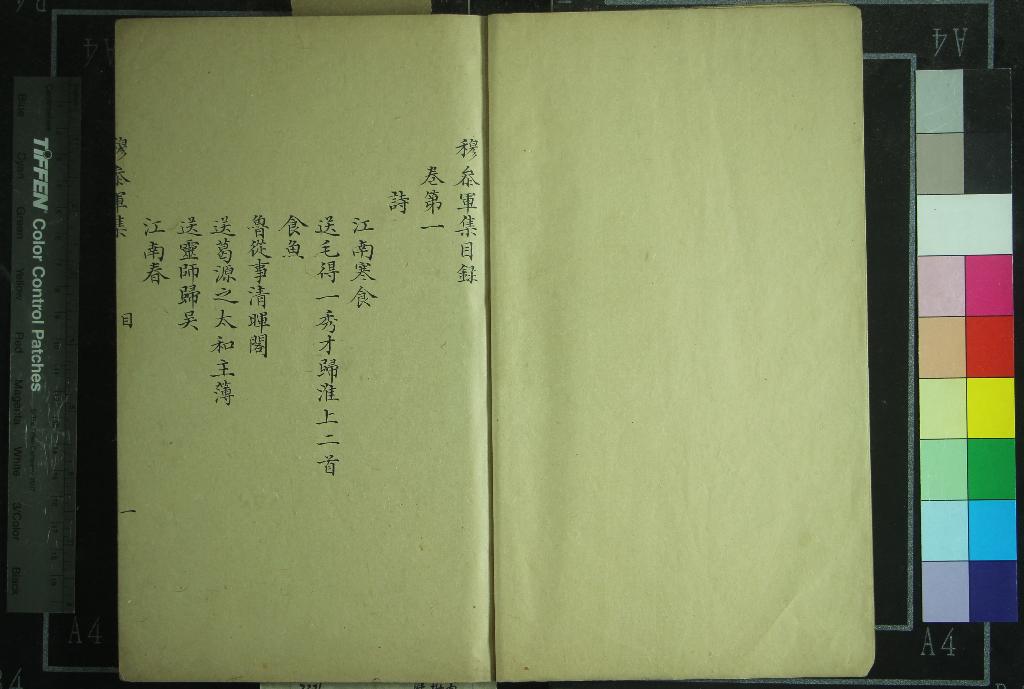 穆叅軍集目録
卷第一
詩
江南寒食
送毛得一秀才歸淮上二首
食魚
魯從事清暉閣
送葛源之太和主薄
送靈師歸吴
江南春
穆叅軍集
目
一
TIFFEN Color Control Patches
Blue
Cyan
Green
Yellow
Red
Magenta
White
3/Color
Black
A4
A4
A4
A4